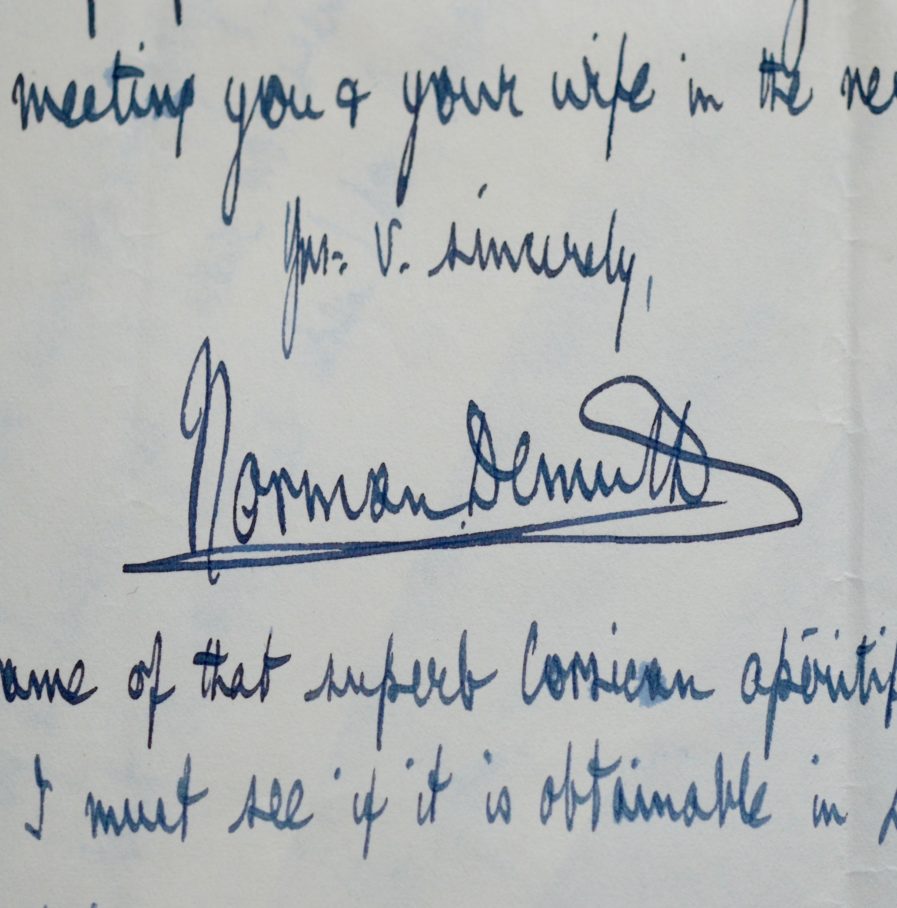 meeting you & your wife in the
Yrs. V. sincerely,
Norman Demuth
of that superb Corsican apéritif
I must see if it is obtainable in